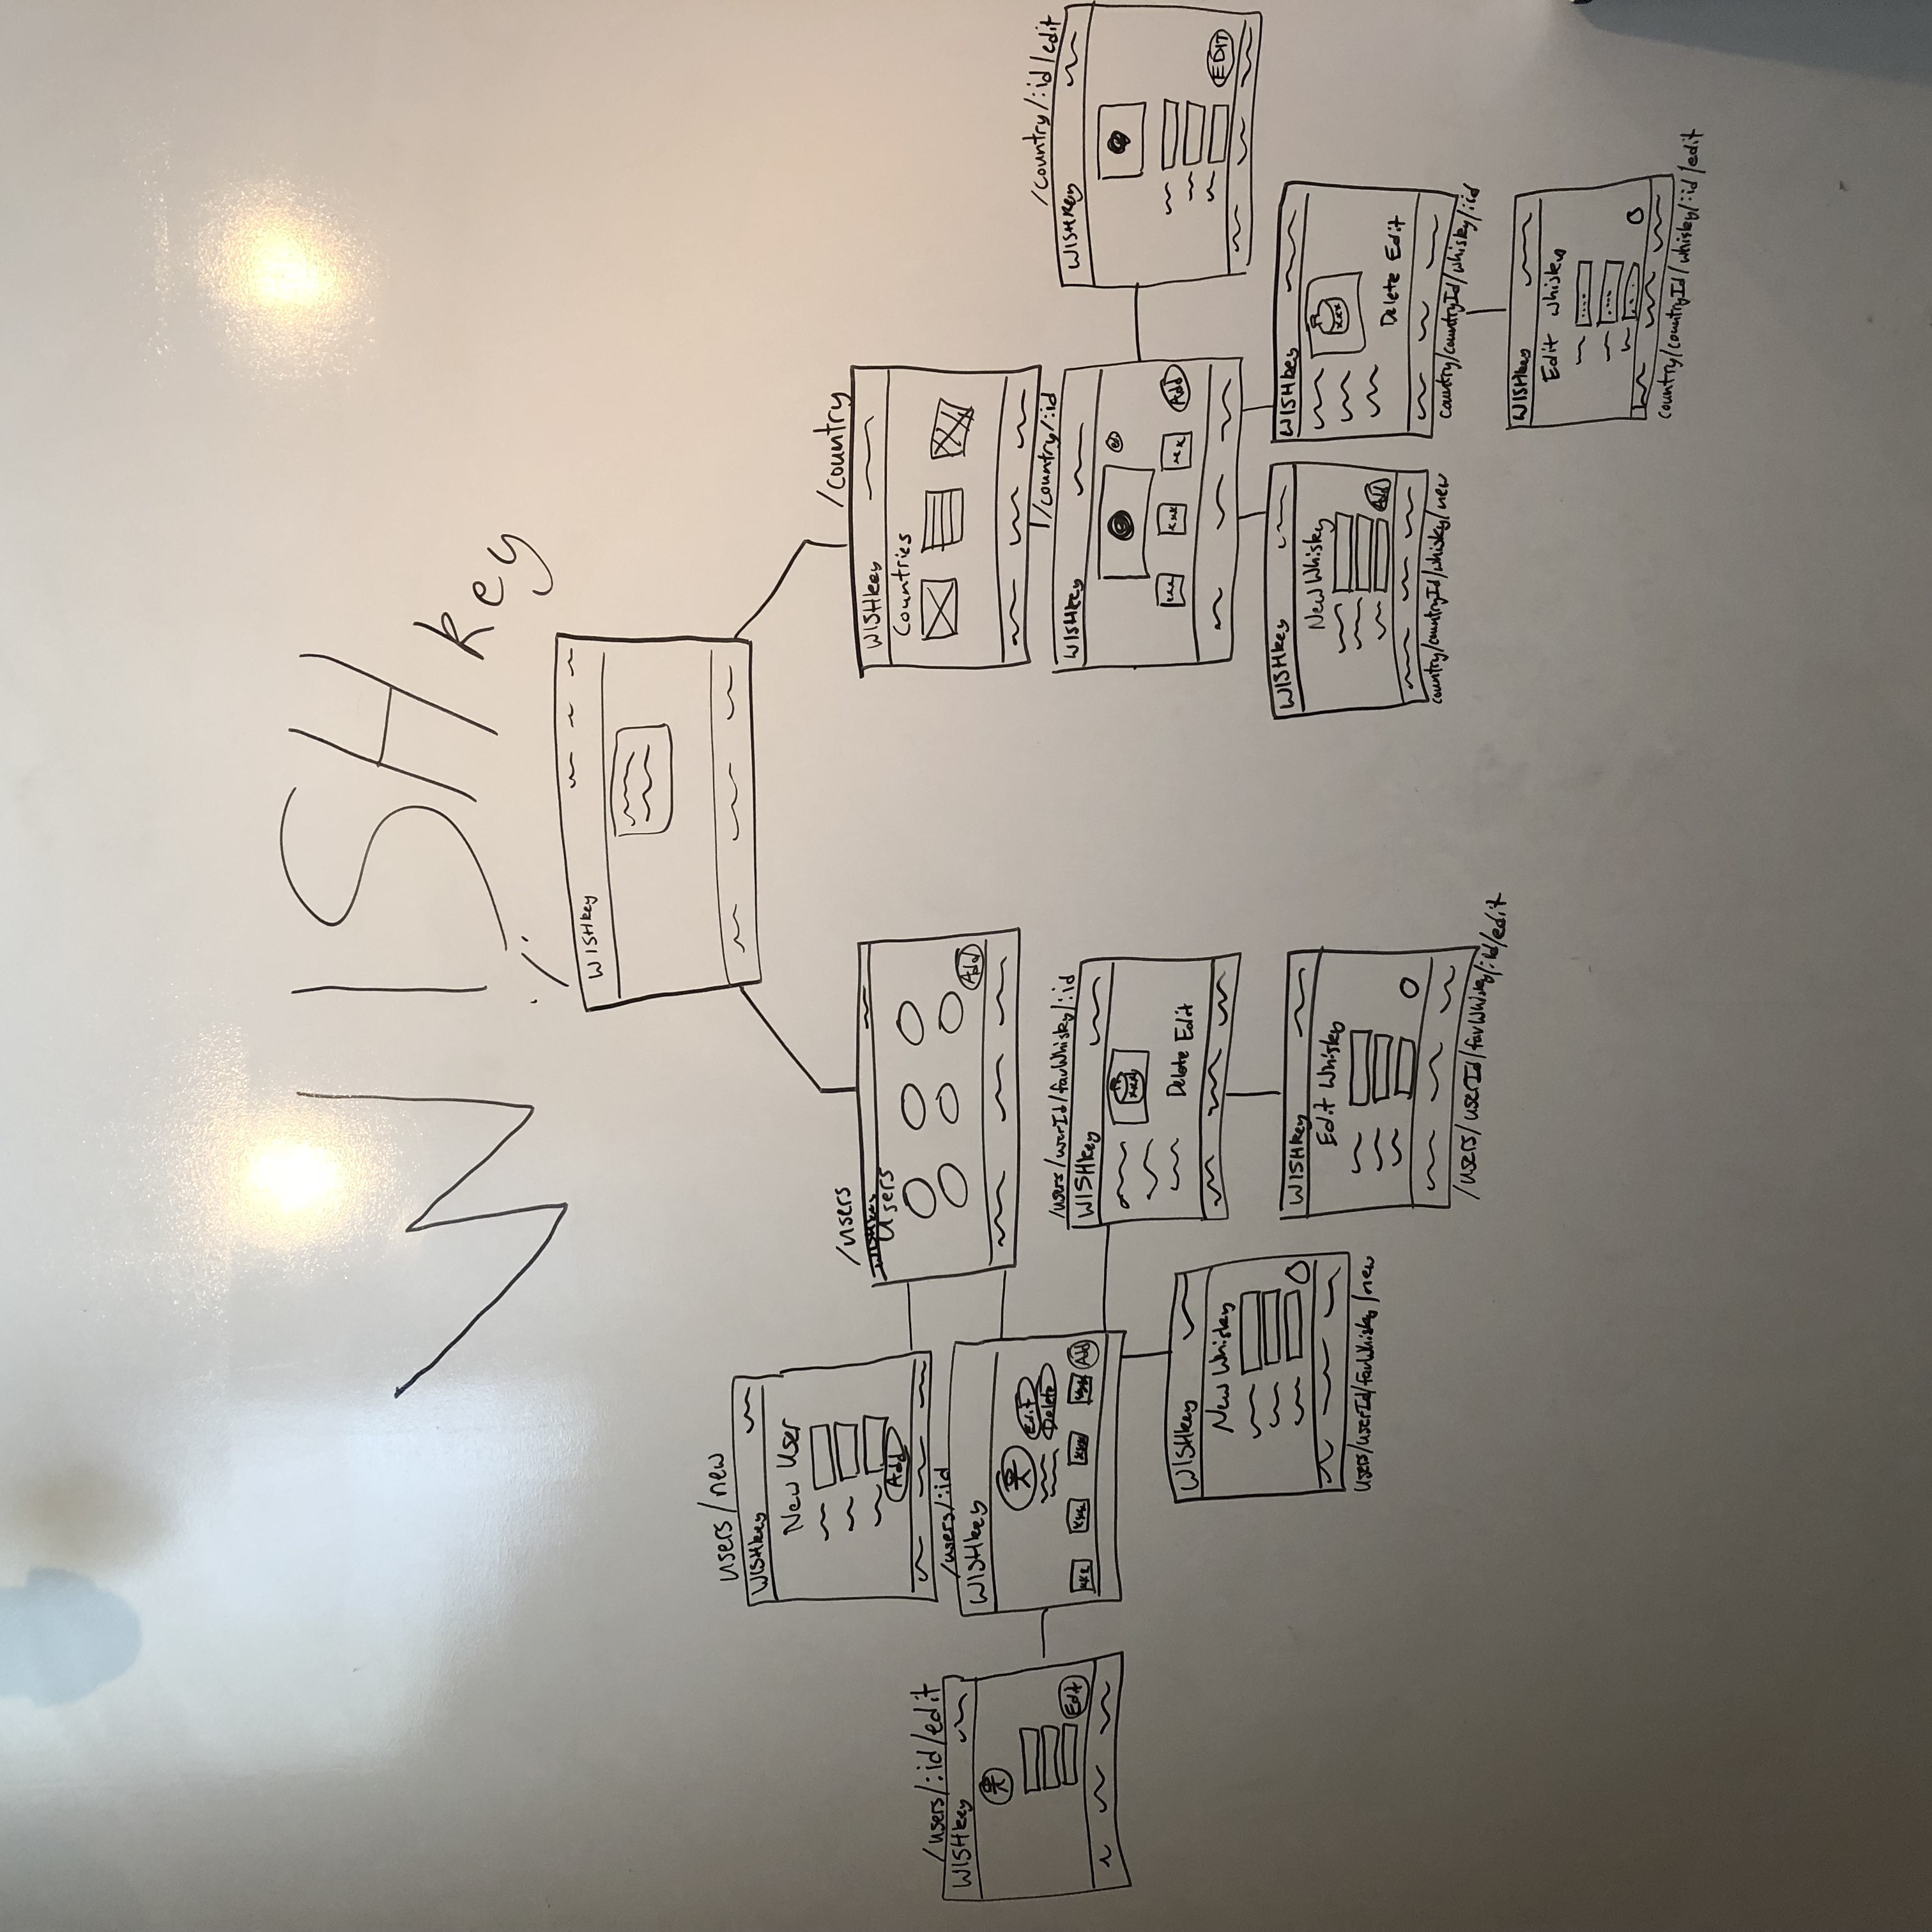 WISHkey
WISHkey
users/new
WISHkey
New User
Add
/users
WISHkey
Users
Add
/users/:id/edit
WISHkey
Edit
/users/:id
WISHkey
Edit
Delete
xxx xxx xxx xxx Add
/users/userId/favWhisky/:id
WISHkey
xxx
Delete Edit
WISHkey
New Whisky
users/userId/favWhisky/new
WISHkey
Edit Whisky
/users/userId/favWhisky/:id/edit
/country
WISHkey
Countries
/country/:id
WISHkey
xxx xxx xxx Add
/country/:id/edit
WISHkey
EDIT
WISHkey
New Whisky
Add
country/countryId/whisky/new
WISHkey
xxx
Delete Edit
country/countryId/whisky/:id
WISHkey
Edit whisky
country/countryId/whisky/:id/edit